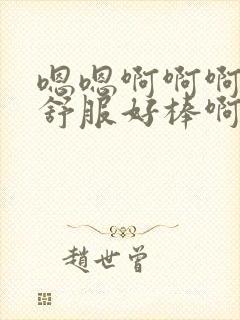 嗯嗯啊啊啊
舒服好棒啊
趙世曾